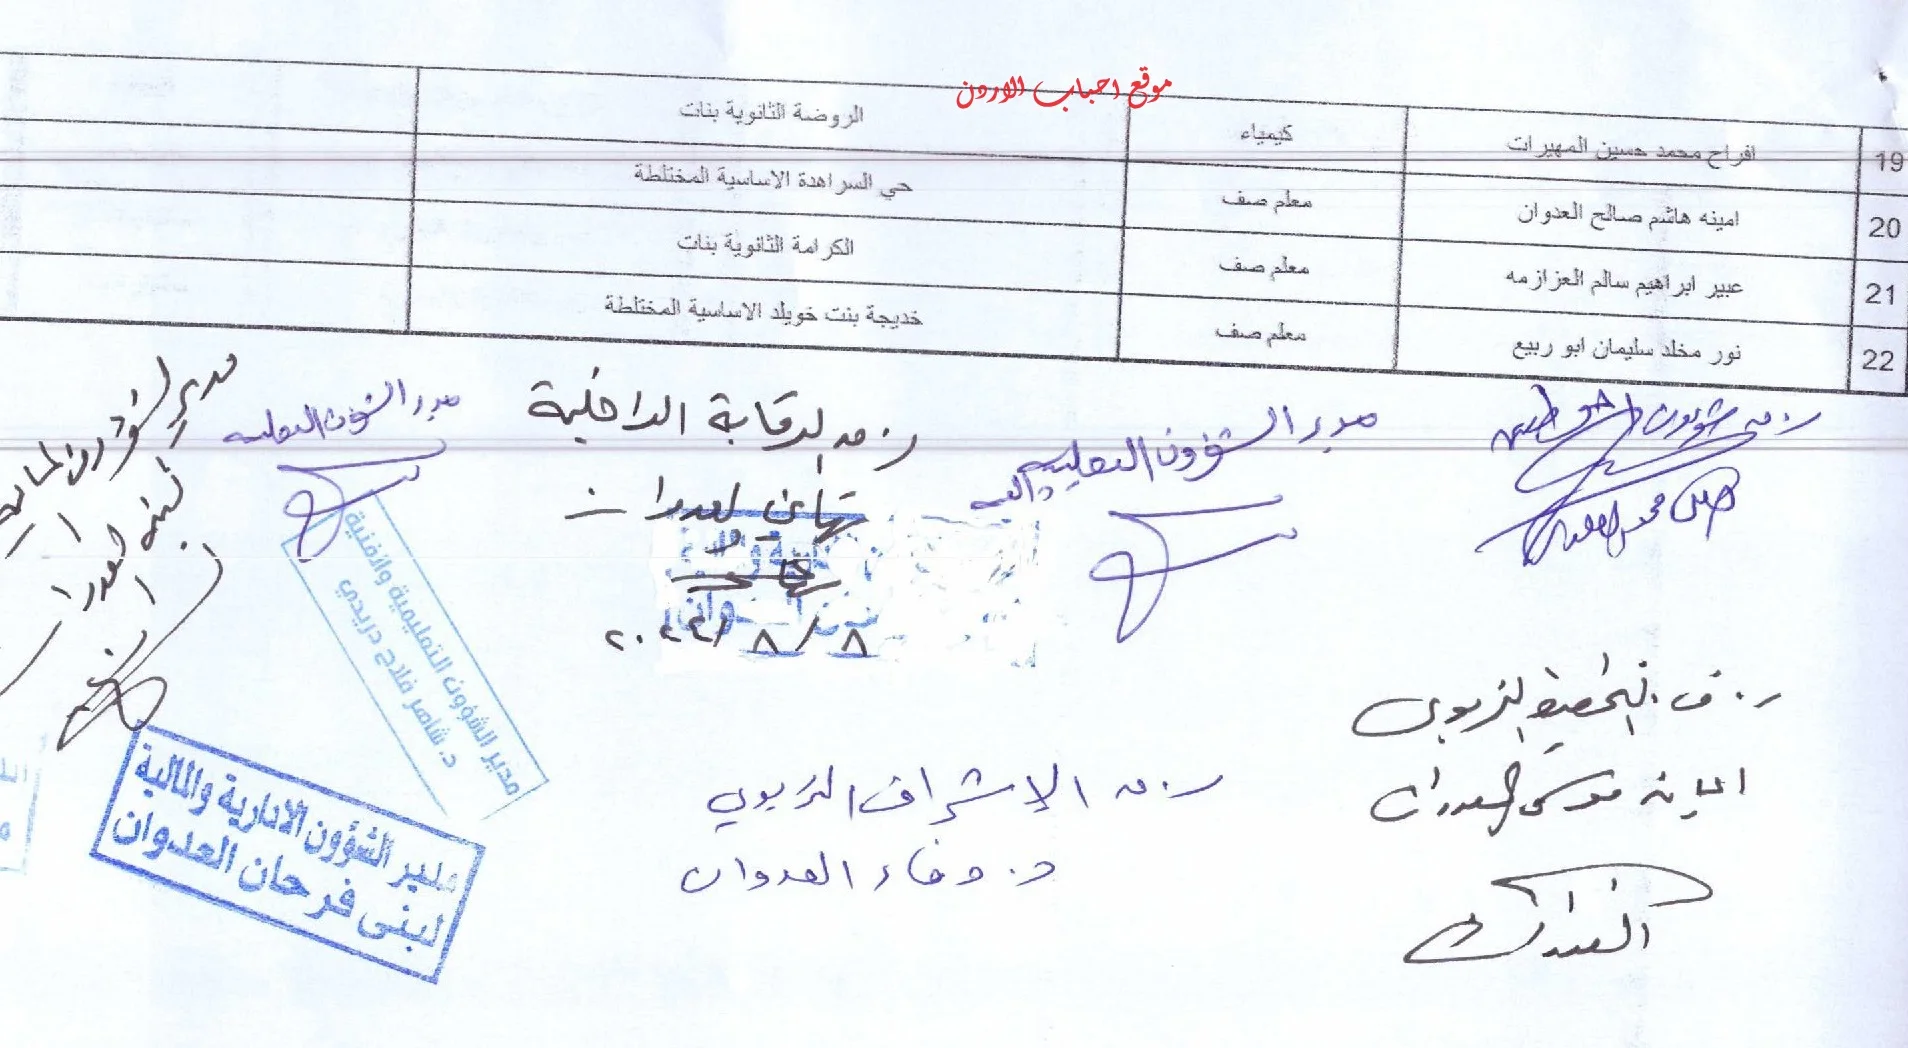 موقع احباب الاردن
19 افراح محمد حسين المهيرات كيمياء الروضة الثانوية بنات
20 امينه هاشم صالح العدوان معلم صف حي السراهدة الاساسية المختلطة
21 عبير ابراهيم سالم العزازمه معلم صف الكرامة الثانوية بنات
22 نور مخلد سليمان ابو ربيع معلم صف خديجة بنت خويلد الاساسية المختلطة
مدير الشؤون التعليمية
ر.ق الرقابة الداخلية
تهاني العدوان
٢٠٢٢/٨/٨
مدير الشؤون التعليمية
مدير الشؤون المالية
لبنى العدوان
مدير الشؤون التعليمية والفنية
د. شاهر فلاح دريدي
ر.ق التخطيط التربوي
موسى العدوان
ر.ق الإشراف التربوي
د. وفاء العدوان
مدير الشؤون الادارية والمالية
لبنى فرحان العدوان